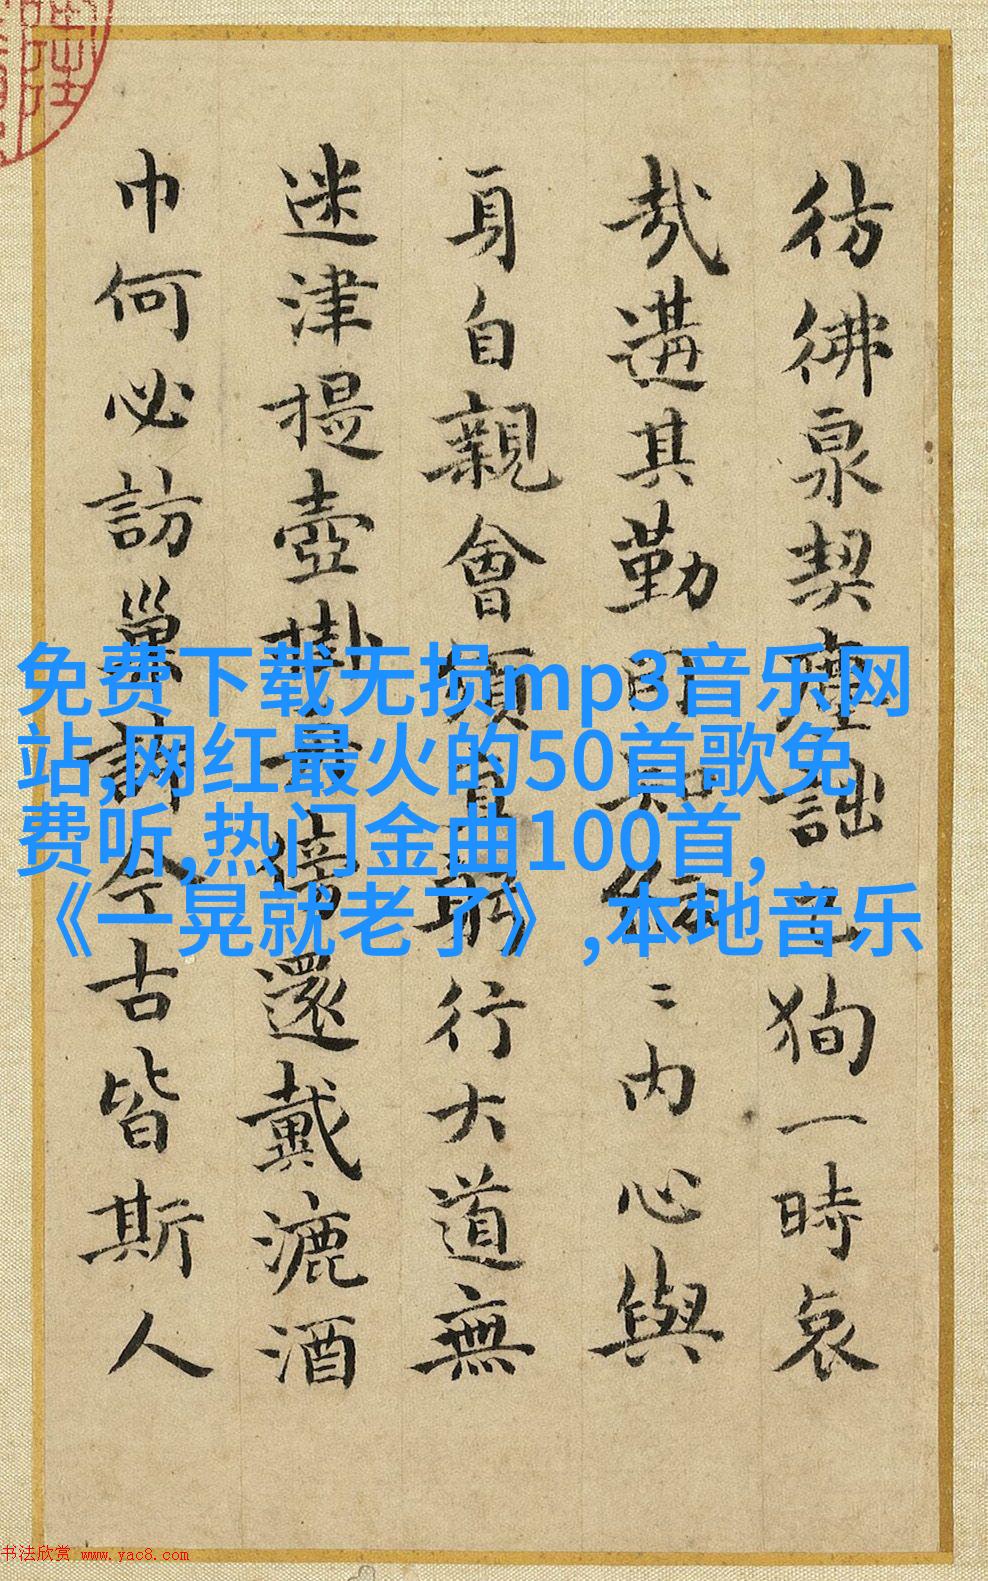 彷彿泉契瘞詘狗一時哀
哉遘其勤内心與
身自親會頻行大道無
迷津提壺掛還戴漉酒
巾何必訪巢訥今古皆斯人
免费下载无损mp3音乐网
站,网红最火的50首歌免
费听,热门金曲100首,
《一晃就老了》,本地音乐
书法欣赏 www.yac8.com